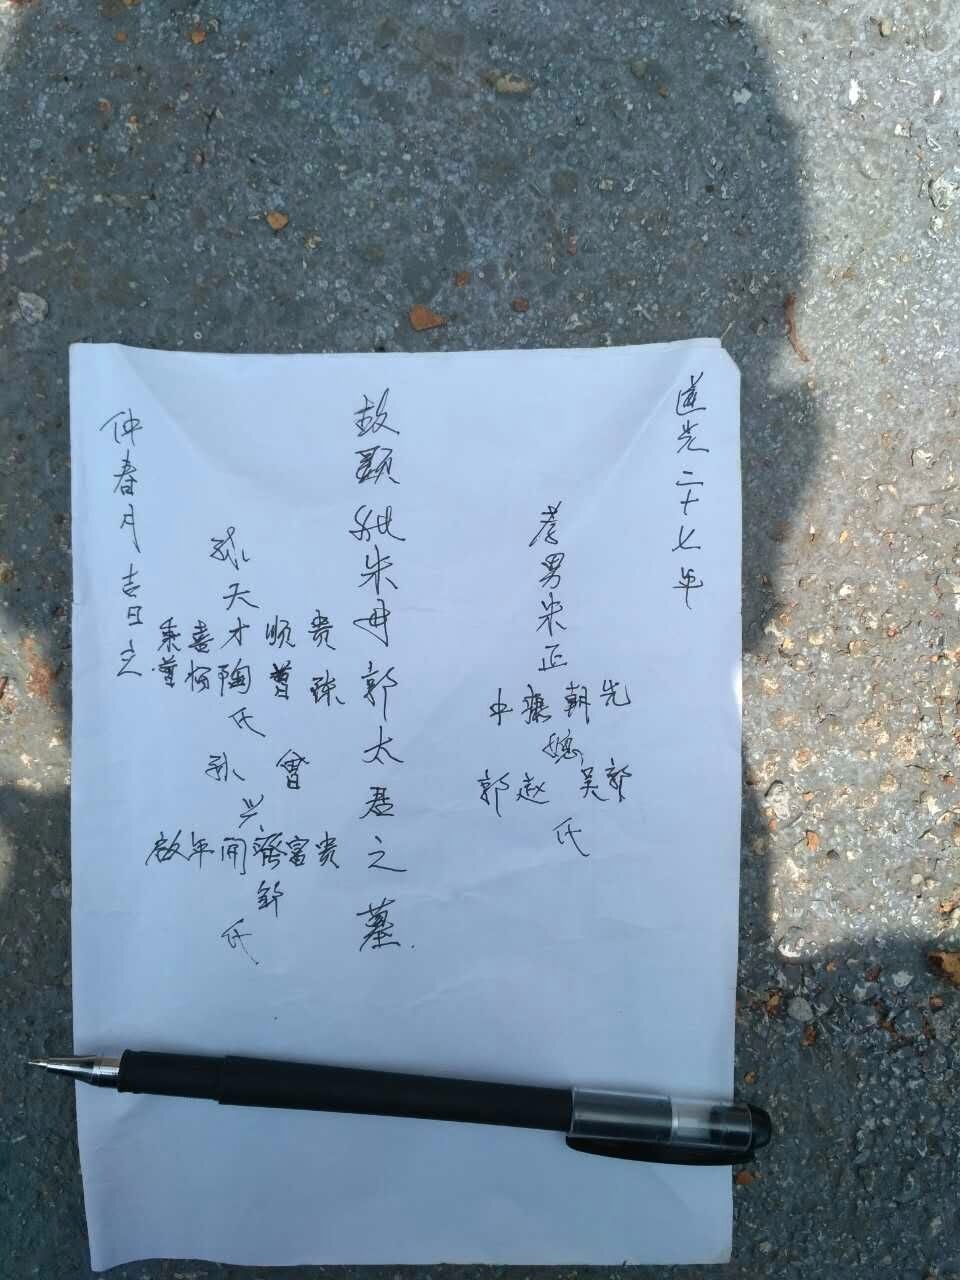 道光二十七年
孝男朱正
中 朝先
媳
郭赵 吴郭
氏
故顕妣朱母郭太君之墓.
孙天
秉喜才顺贵
曾杨陶曾孫
氏
孙 曾
兴
啟年開 富贵
氏
仲春月吉日立